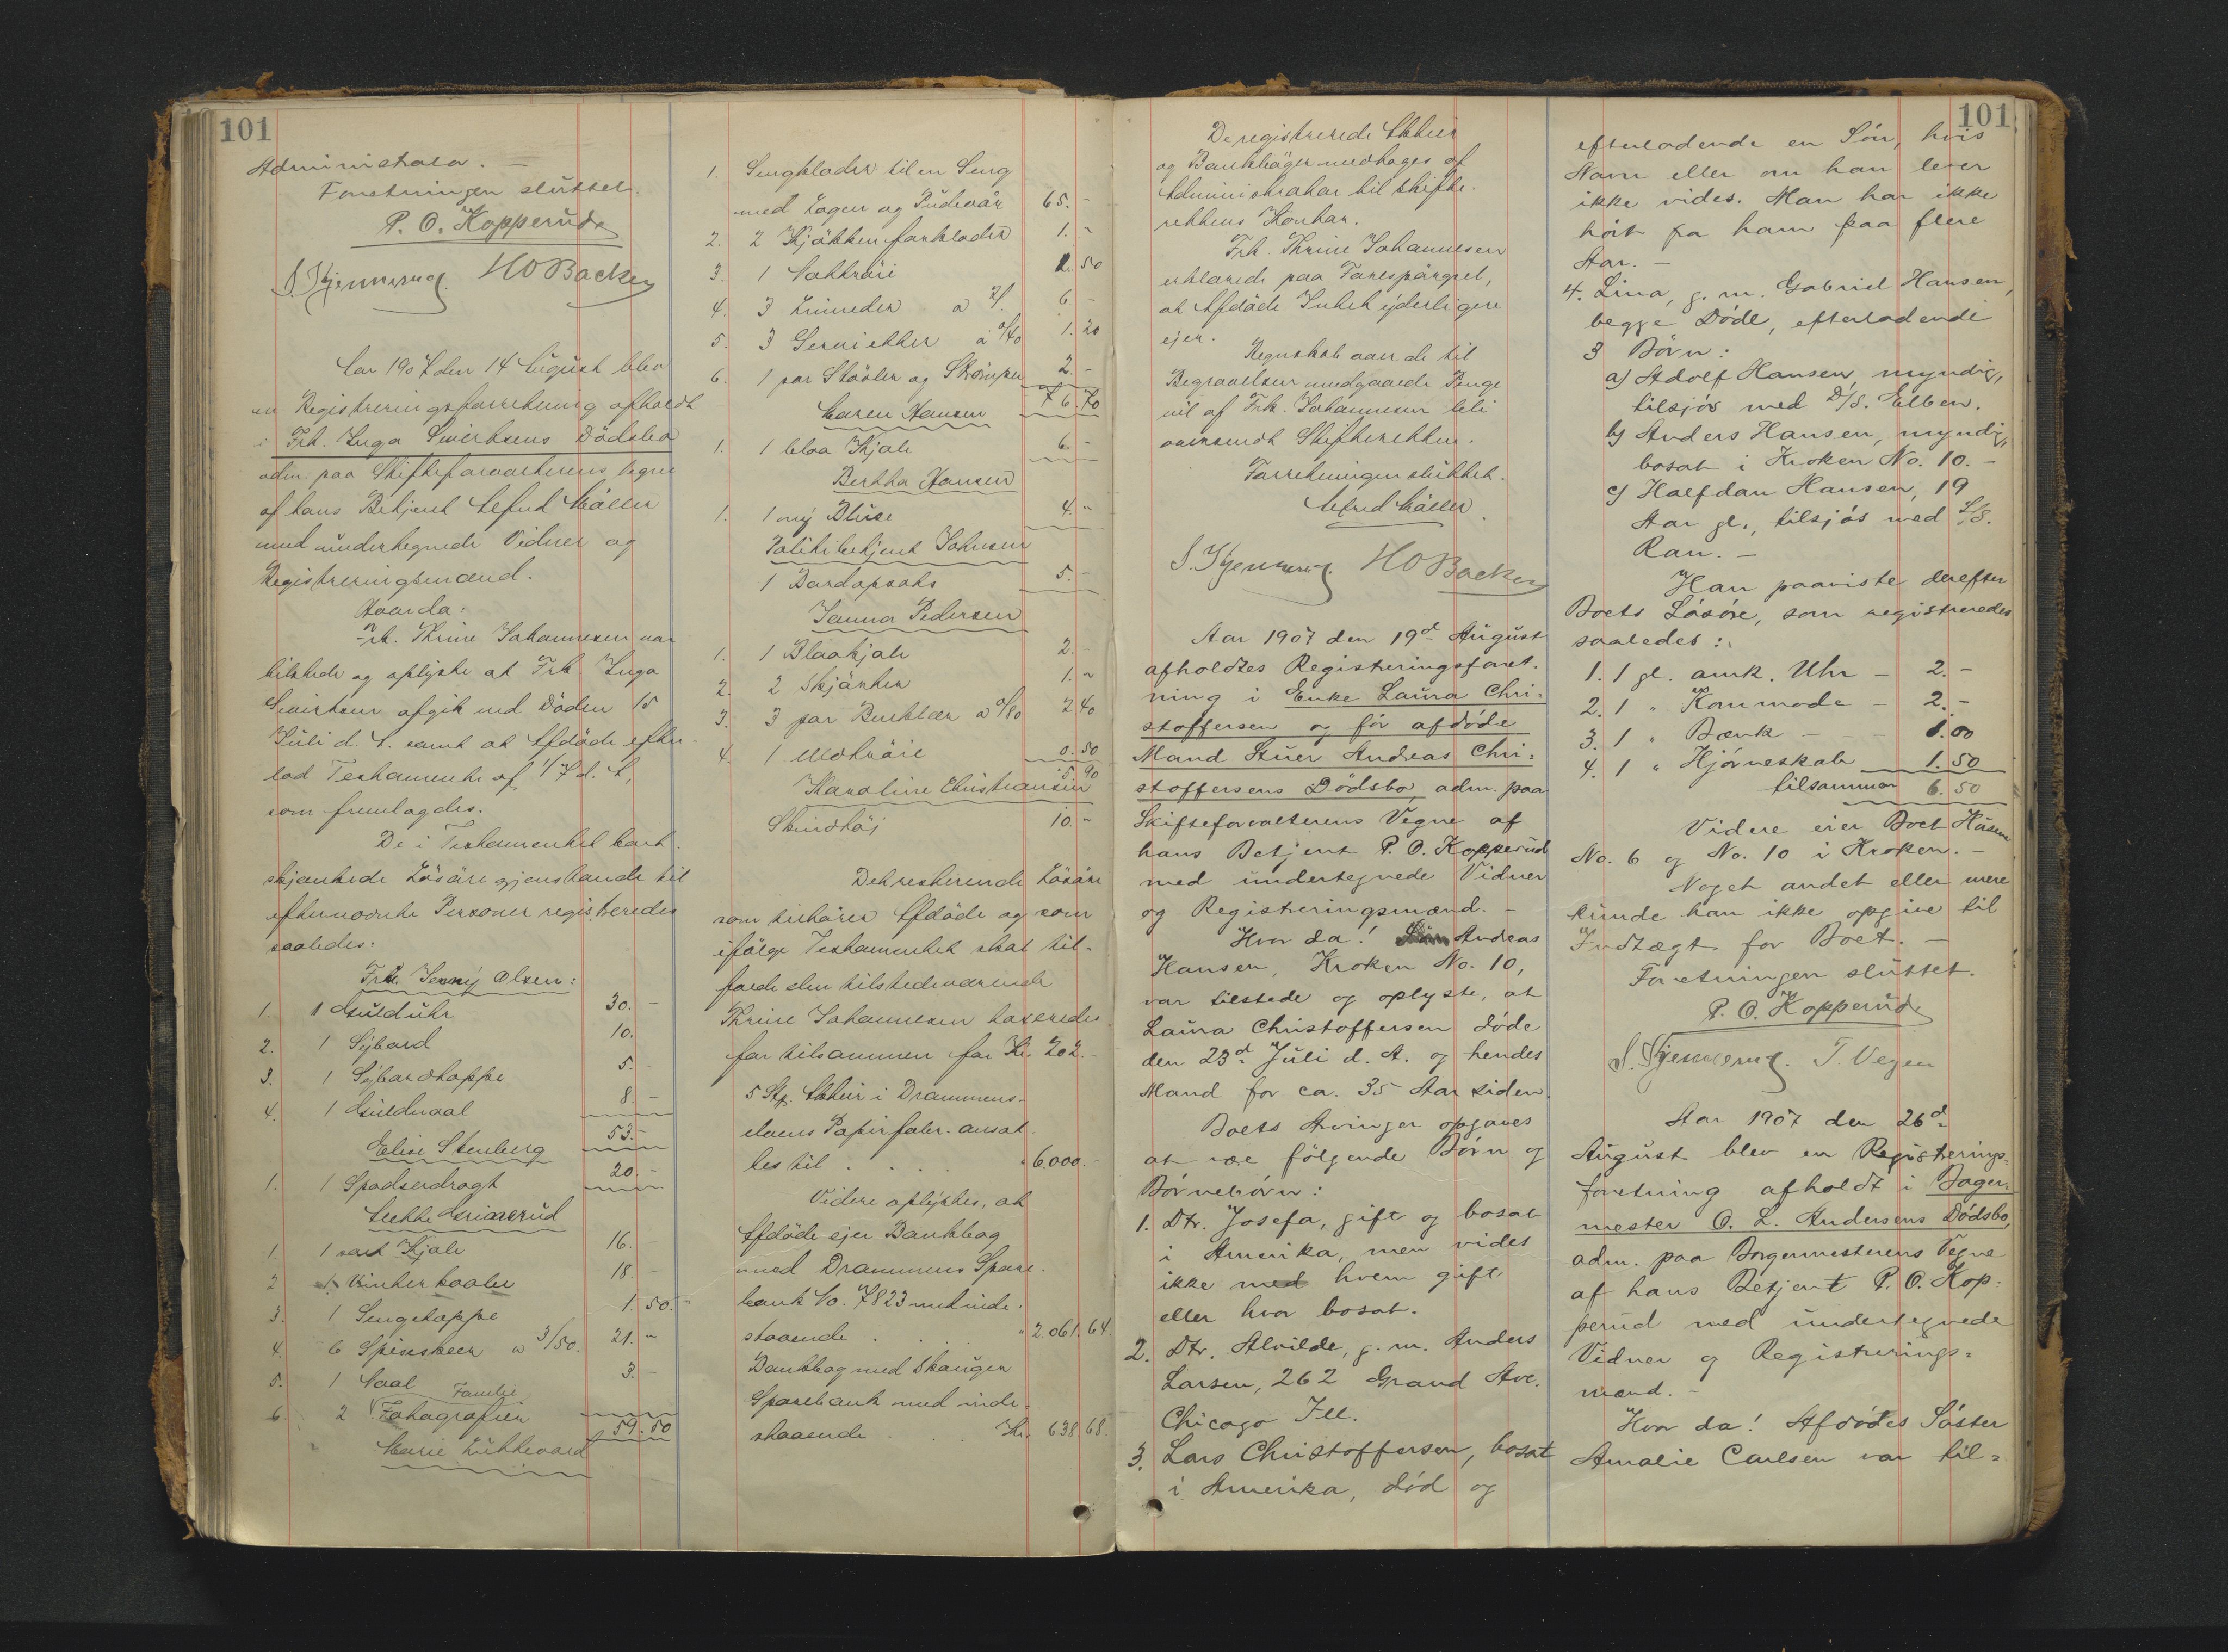 101
Administrator. —
Forretningen sluttet.
P. O. Kopperud
HOBacken
Aar 1907 den 14 August blev
en Registreringsforretning afholdt
i Frk. Inga Sivertsens Dödsbo
adm. paa Skifteforvalterens Vegne
af hans Betjent Alfred Møller
med undertegnede Vidner og
Registreringsmænd.
Hvorda:
Frk. Thrine Johannesen var
tilstede og oplyste at Frk. Inga
Sivertsen afgik ved Döden 15
Juli d. A. samt at Afdöde efter-
lod Testamente af 1/7 d. A,
som fremlagdes.
De i Testamentet bort-
skjænkede Lösöre gjenstande til
efternævnte Personer registreredes
saaledes:
Frk. Jenny Olsen:
1. 1 Gulduhr 30. -
2. 1 Sybord 10.
3. 1 Sybordtoppe 5. -
4. 1 Guldnaal 8. -
53. -
Elise Stenberg
1. 1 Spadserdragt 20. -
1. 1 sort Kjole 16.
2 1 Vinterkaabe 18. -
3. 1 Sengetæppe 1. 50.
4. 6 Spiseskeer a 3/50. 21. "
5. 1 Naal 3. -
Familie
6. 2 Fotografier
59. 50
Marie Lükkevold
1. Sengklæder til en Seng
med Lagen og Pudevår 65. -
2. 2 Kjökkenforklæder 1. -
3. 1 Nattröie 1. 50
4. 3 Linneder a 2/. 6. -
5. 3 Servietter à 0/40 1. 20
6. 1 par Støvler og Strömper 2. -
76. 70
Maren Hansen
1. 1 blaa Kjole 6. -
Bertha Hansen
1. 1 ny Bluse 4. "
Politibetjent Johnsen
1 Bordopsats 5. -
Janna Pedersen
1. 1 Blaakjole 2. -
2. 2 Skjörter 1. -
3. 3 par Benklær a 0/80 2 40
4. 1 uldtröie 0. 50
5. 90
Karoline Christiansen
Skindtöj 10. -
Det resterende Lösöre
som tilhörer Afdöde og som
ifölge Testamentet skal til-
falde den tilstedeværende
Thrine Johannesen taxeredes
for tilsammen for Kr. 202. -
5 Stk. Aktier i Drammens-
elvens Papirfabr. ansat-
tes til . . . . " 6.000. -
Videre oplystes, at
Afdöde ejer Bankbog
med Drammens Spare-
bank No. 7823 med inde-
staaende . . . " 2.061. 64.
Bankbog med Skauger
Sparebank med inde-
staaende . . . Kr. 638. 68.
101
De registrerede Aktier
og Bankbøger medtages af
Administrator til Skifte-
rettens Kontor.
Frk. Thrine Johannesen
erklærede paa Forespörgsel,
at Afdöde Intet yderligere
ejer.
Regnskab over de til
Begravelsen medgaaede Penge
vil af Frk. Johannesen blive
oversendt Skifteretten.
Forretningen sluttet.
Alfred Møller
HOBacken
Aar 1907 den 19d August
afholdtes Registreringsforret-
ning i Enke Laura Chri=
stoffersen og för afdöde
Mand Stuer Andreas Chri=
stoffersens Dödsbo, adm. paa
Skifteforvalterens Vegne af
hans Betjent P. O. Kopperud
med undertegnede Vidner
og Registreringsmænd. -
Hvor da! Andreas
Hansen, Kroken No. 10,
var tilstede og oplyste, at
Laura Christoffersen döde
den 23d Juli d. A. og hendes
Mand for ca. 35 Aar siden.
Boets Arvinger opgaves
at være fölgende Börn og
Börnebörn:
1. Dtr. Josefa, gift og bosat
i Amerika, men vides
ikke med hvem gift
eller hvor bosat.
2. Dtr. Alvilde, g. m. Anders
Larsen, 262 Grand Ave.
Chicago Ill.
3. Lars Christoffersen, bosat
i Amerika, död og
efterladende en Sön, hvis
Navn eller om han lever
ikke vides. Man har ikke
hört fra ham paa flere
Aar. -
4. Lina, g. m. Gabriel Hansen,
begge Döde, efterladende
3 Börn:
a) Adolf Hansen, myndig,
tilsjös med D/S. Elben.
b) Anders Hansen, myndig,
bosat i Kroken No. 10. -
c) Halfdan Hansen, 19
Aar gl., tilsjös med S/S.
Ran. -
Han paaviste derefter
Boets Lösöre, som registreredes
saaledes:
1. 1 gl. amk. Uhr - 2. -
2. 1 " Kommode - 2. -
3. 1 " Bænk - - - 1. 00
4. 1 " Hjörneskab 1. 50
tilsammen 6. 50
Videre eier Boet Husene
No. 6 og No. 10 i Kroken. -
Noget andet eller mere
kunde han ikke opgive til
Indtægt for Boet. -
Forretningen sluttet.
P. O. Kopperud
T. Vegen
Aar 1907 den 26d
August blev en Registrerings=
forretning afholdt i Bager=
mester O. L. Andersens Dödsbo,
adm. paa Borgermesterens Vegne
af hans Betjent P. O. Kop-
perud med undertegnede
Vidner og Registrerings=
mænd. -
Hvor da! Afdödes Söster
Amalie Carlsen var til=